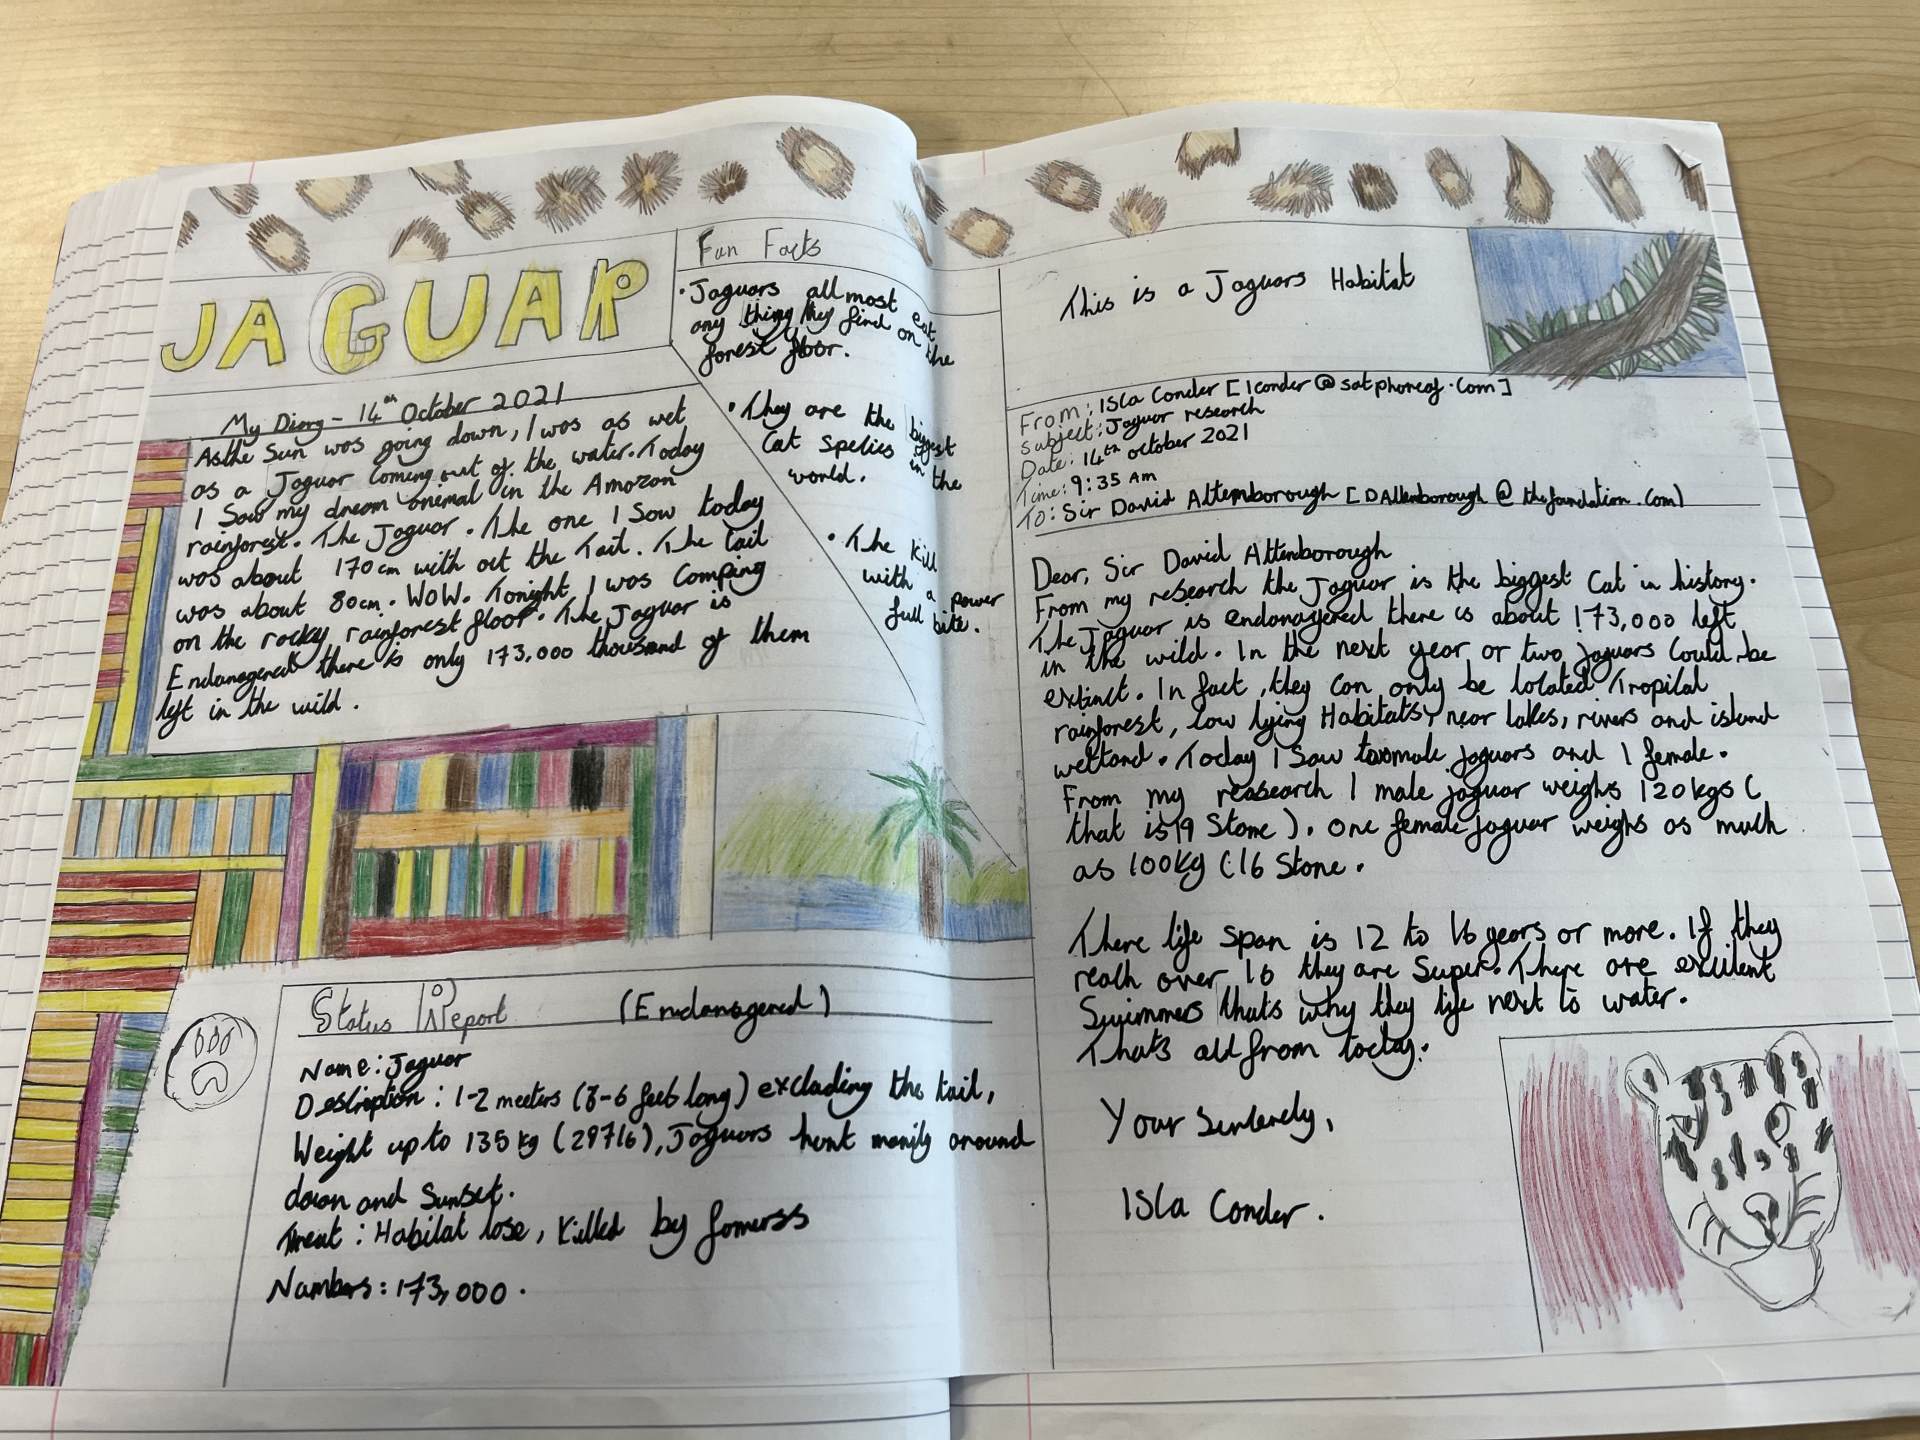 JAGUAR
My Diary - 14th October 2021
As the Sun was going down, I was as wet
as a Jaguar coming out of the water. Today
I Saw my dream animal in the Amazon
rainforest. The Jaguar. The one I Saw today
was about 170cm with out the Tail. The tail
was about 80cm. WOW. Tonight I was Camping
on the rocky rainforest floor. The Jaguar is
Endanagered there is only 173,000 thousand of them
left in the wild.
Fun Facts
• Jaguars all most eat
any thing they find on the
forest floor.
• They are the biggest
Cat species in the
world.
• The kill
with a power
full bite.
Status Report (Endanagered)
Name: Jaguar
Description: 1-2 meeters (3-6 feet long) excluding the tail,
Weight up to 135kg (297lb), Jaguars hunt manily around
dawn and Sunset.
Treat: Habitat lose, Killed by famerss
Numbers: 173,000.
This is a Jaguars Habitat
From: Isla Conder [Iconder@satphoneof.com]
Subject: Jaguar research
Date: 14th october 2021
Time: 9:35 Am
To: Sir David Attemborough [DAttenborough@thefoundation.com)
Dear, Sir David Attenborough
From my research the Jaguar is the biggest Cat in history.
The Jaguar is endanagered there is about 173,000 left
in the wild. In the next year or two jaguars Could be
extinct. In fact, they can only be located Tropical
rainforest, low lying Habitats, near lakes, rivers and island
wetland. Today I Saw two male jaguars and 1 female.
From my reasearch 1 male jaguar weighs 120kgs (
that is 19 Stone). One female jaguar weighs as much
as 100kg (16 Stone.
There life span is 12 to 16 years or more. If they
reach over 16 they are Super. There are exculent
Swimmers thats why they life next to water.
Thats all from today.
Your Sincerely,
Isla Conder.